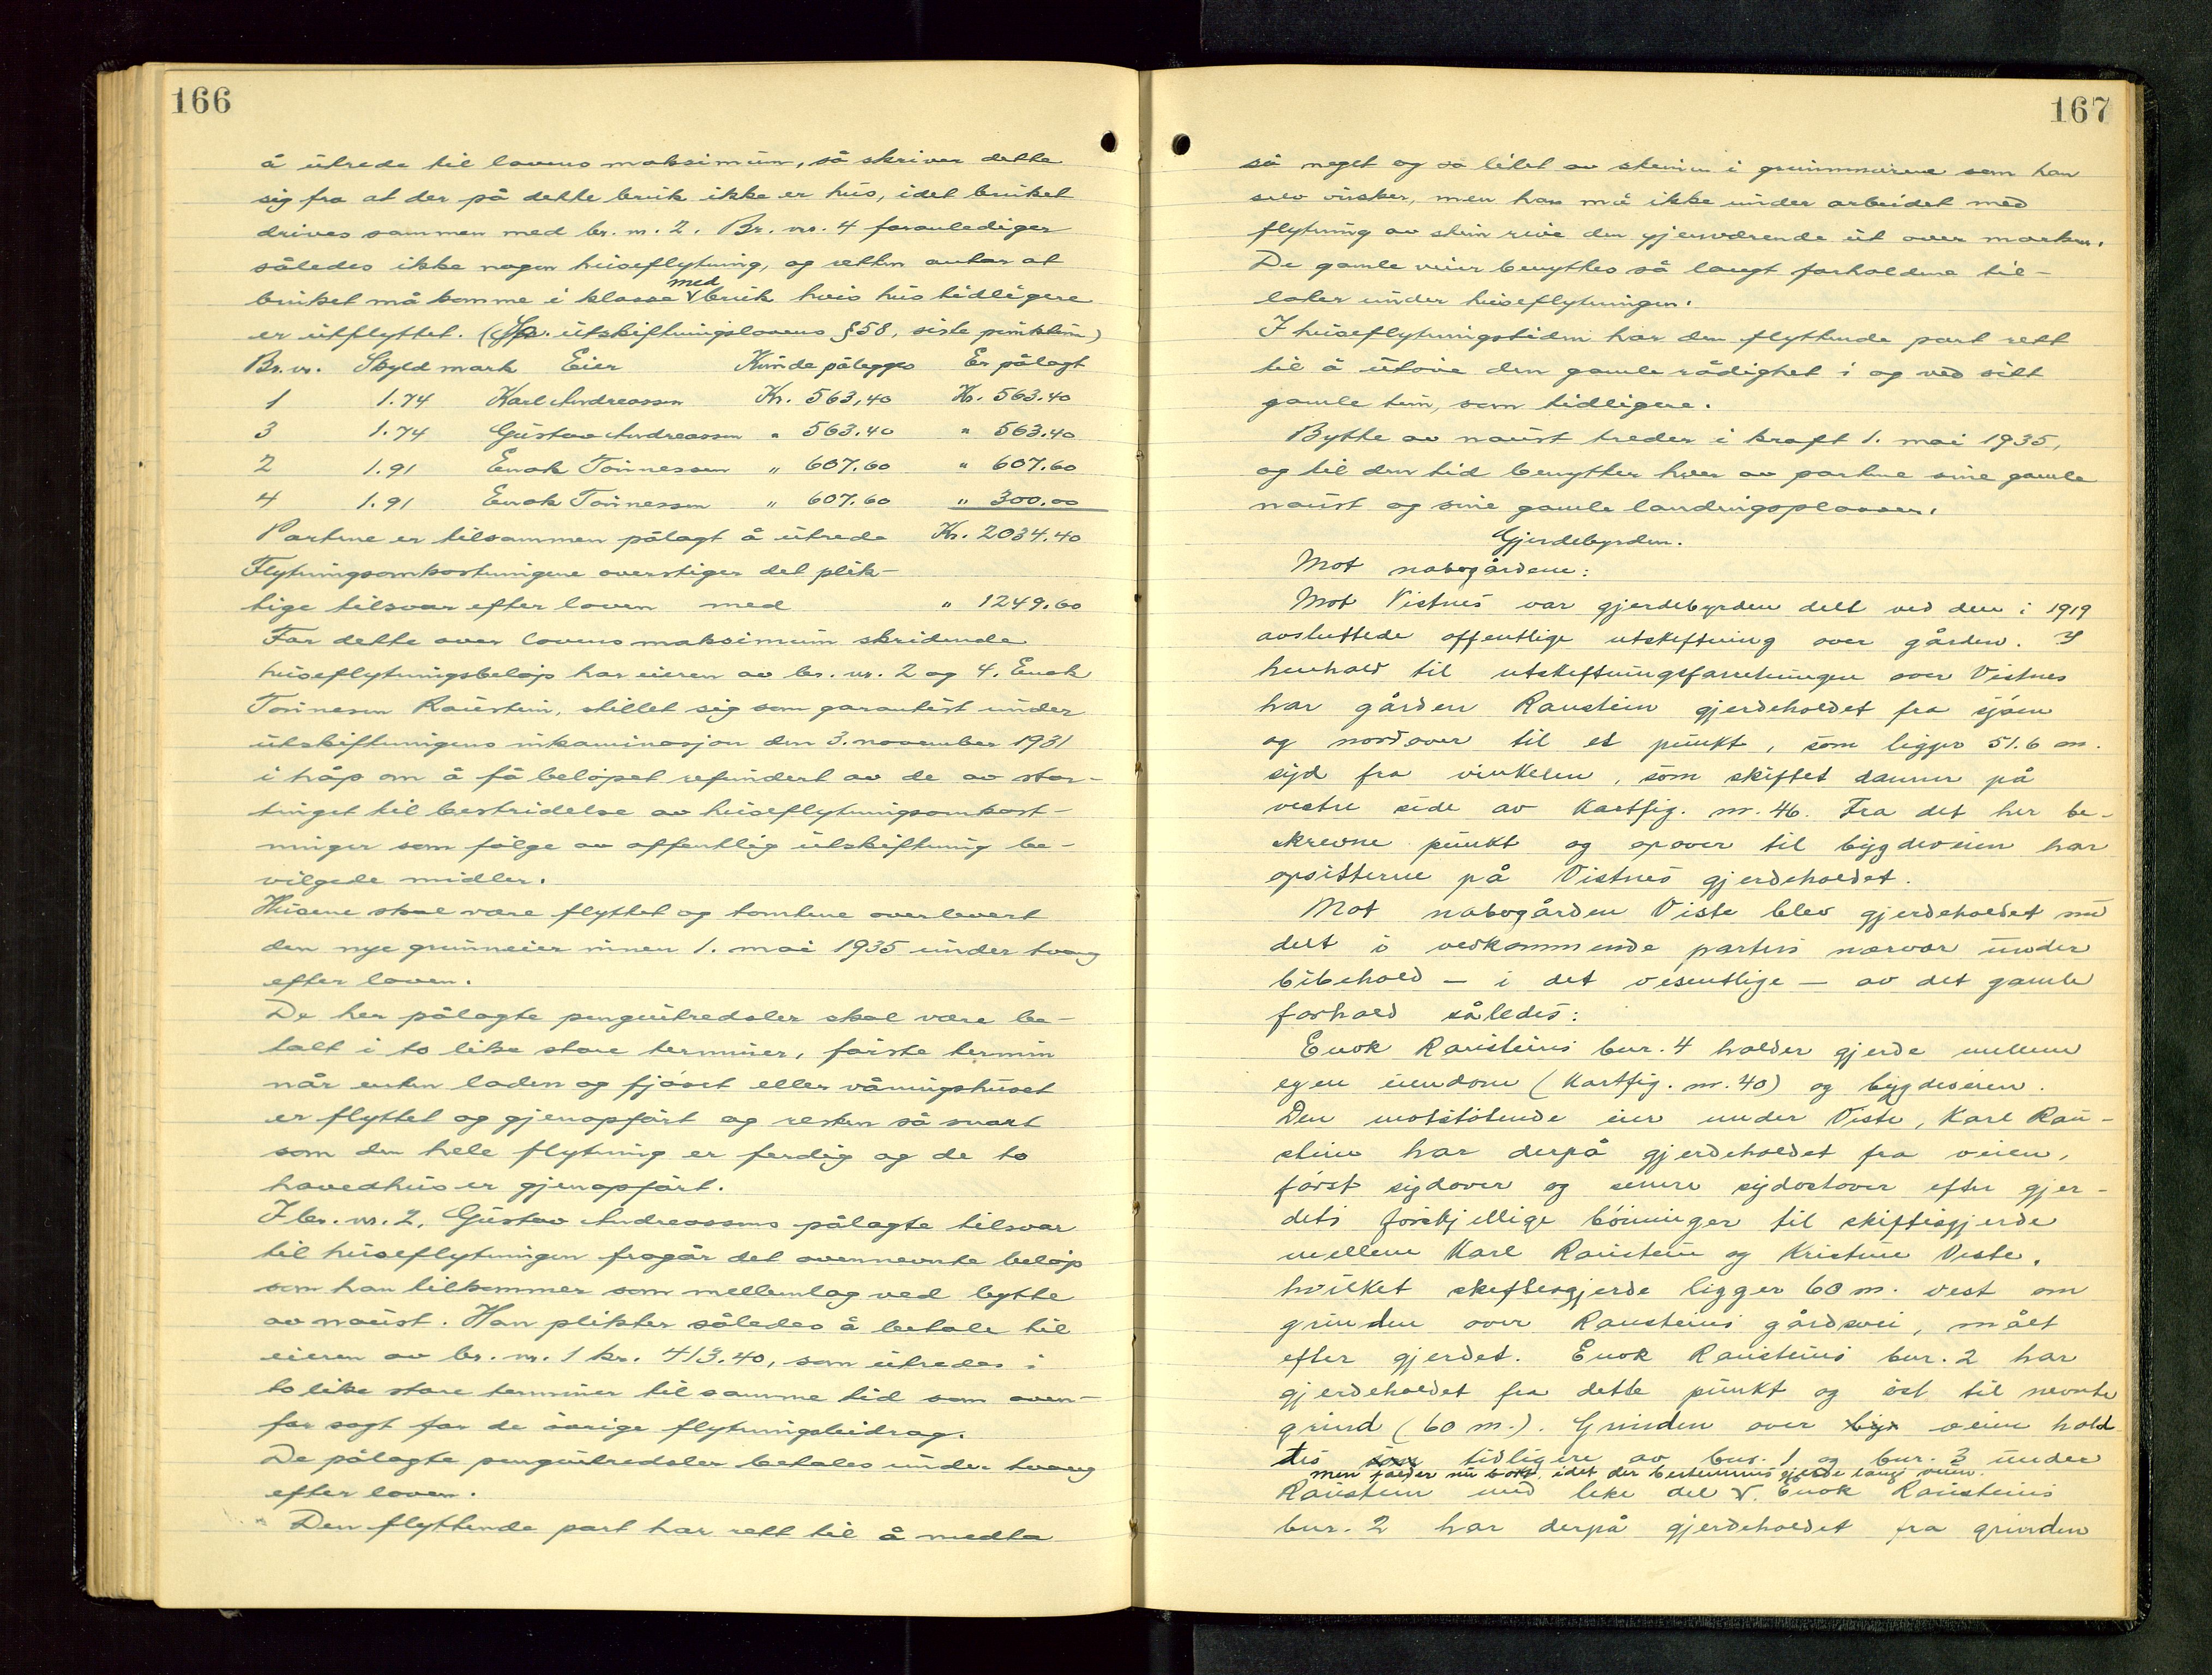 166
å utrede til lovens maksimum, så skriver dette
sig fra at der på dette bruk ikke er hus, idet bruket
drives sammen med br. nr. 2. Br. nr. 4 foranlediger
således ikke nogen huseflytning, og retten antar at
bruket må komme i klasse med bruk hvis hus tidligere
er utflyttet. (Jfr. utskiftningslovens § 58, siste punktum)
Br. nr. Skyld mark Eier Kunde pålegges Er pålagt
1 1.74 Karl Andreassen Kr. 563,40 Kr. 563.40
3 1.74 Gustav Andreassen " 563.40 " 563.40
2 1.91 Enok Tønnessen " 607.60 " 607.60
4 1.91 Enok Tønnessen " 607.60 " 300.00
Partene er tilsammen pålagt å utrede Kr. 2034.40
Flytningsomkostningene overstiger det plik-
tige tilsvar efter loven med " 1249.60
For dette over lovens maksimum skridende
huseflytningsbeløp har eieren av br. nr. 2 og 4. Enok
Tønnesen Raustein, stillet sig som garantist under
utskiftningens inkaminasjon den 3. november 1931
i håp om å få beløpet refundert av de av stor-
tinget til bestridelse av huseflytningsomkost-
ninger som følge av offentlig utskiftning be-
vilgede midler.
Husene skal være flyttet og tomtene overlevert
den nye grunneier innen 1. mai 1935 under tvang
efter loven.
De her pålagte pengeutredsler skal være be-
talt i to like store terminer, første termin
når enten laden og fjøset eller våningshuset
er flyttet og gjenopført og resten så snart
som den hele flytning er ferdig og de to
hovedhus er gjenopført.
I br. nr. 2, Gustav Andreassens pålagte tilsvar
til huseflytningen fragår det ovennevnte beløp
som han tilkommer som mellemlag ved bytte
av naust. Han plikter således å betale til
eieren av br. nr. 1 kr. 413.40, som utredes i
to like store terminer til samme tid som oven-
for sagt for de øvrige flytningsbidrag.
De pålagte pengeutredsler betales under tvang
efter loven.
Den flyttende part har rett til å medta
167
så meget og så litet av stenen i grunnmurene som han
selv ønsker, men han må ikke under arbeidet med
flytning av stein rive den gjenværende ut over marken.
De gamle veier benyttes så langt forholdene til-
later under huseflytningen.
I huseflytningstiden har den flyttende part rett
til å utøve den gamle rådighet i og ved sitt
gamle tun, som tidligere.
Bytte av naust treder i kraft 1. mai 1935,
og til den tid benytter hver av partene sine gamle
naust og sine gamle landingsplasser.
Gjerdebyrden.
Mot nabogårdene:
Mot Vistnes var gjerdebyrden delt ved den i 1919
avsluttede offentlige utskiftning over gården. I
henhold til utskiftningsforretningen over Vistnes
har gården Raustein gjerdeholdet fra sjøen
og nordover til et punkt, som ligger 51.6 m.
syd fra vinkelen, som skiftet danner på
vestre side av Kartfig. nr. 46. Fra det her be-
skrevne punkt og opover til bygdeveien har
opsitterne på Vistnes gjerdeholdet.
Mot nabogården Viste blev gjerdeholdet nu
delt i vedkommende parters nærvær under
bibehold – i det vesentlige – av det gamle
forhold således:
Enok Rausteins bnr. 4 holder gjerde mellem
egen eiendom (Kartfig. nr. 40) og bygdeveien.
Den motstøtende eier under Viste, Karl Rau-
stein har derpå gjerdeholdet fra veien,
først sydover og senere sydostover efter gjer-
dets forskjellige bøininger til skiftesgjerde
mellem Karl Raustein og Kristine Viste,
hvilket skiftesgjerde ligger 60 m. vest om
grinden over Rausteins gårdsvei, målt
efter gjerdet. Enok Rausteins bnr. 2 har
gjerdeholdet fra dette punkt og øst til nevnte
grind (60 m.). Grinden over veien hold
tes tidligere av bnr. 1 og bnr. 3 under
men falder nu bort, idet der bestemmes gjerde langs veien.
Raustein med like del. Enok Rausteins
bnr. 2 har derpå gjerdeholdet fra grinden